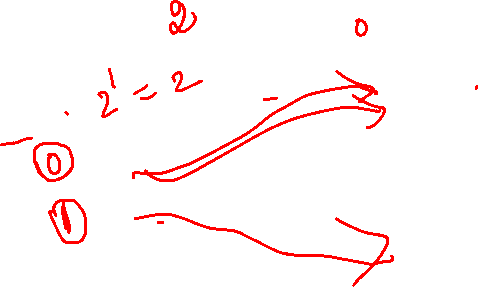 2 0
2¹ = 2
0
1